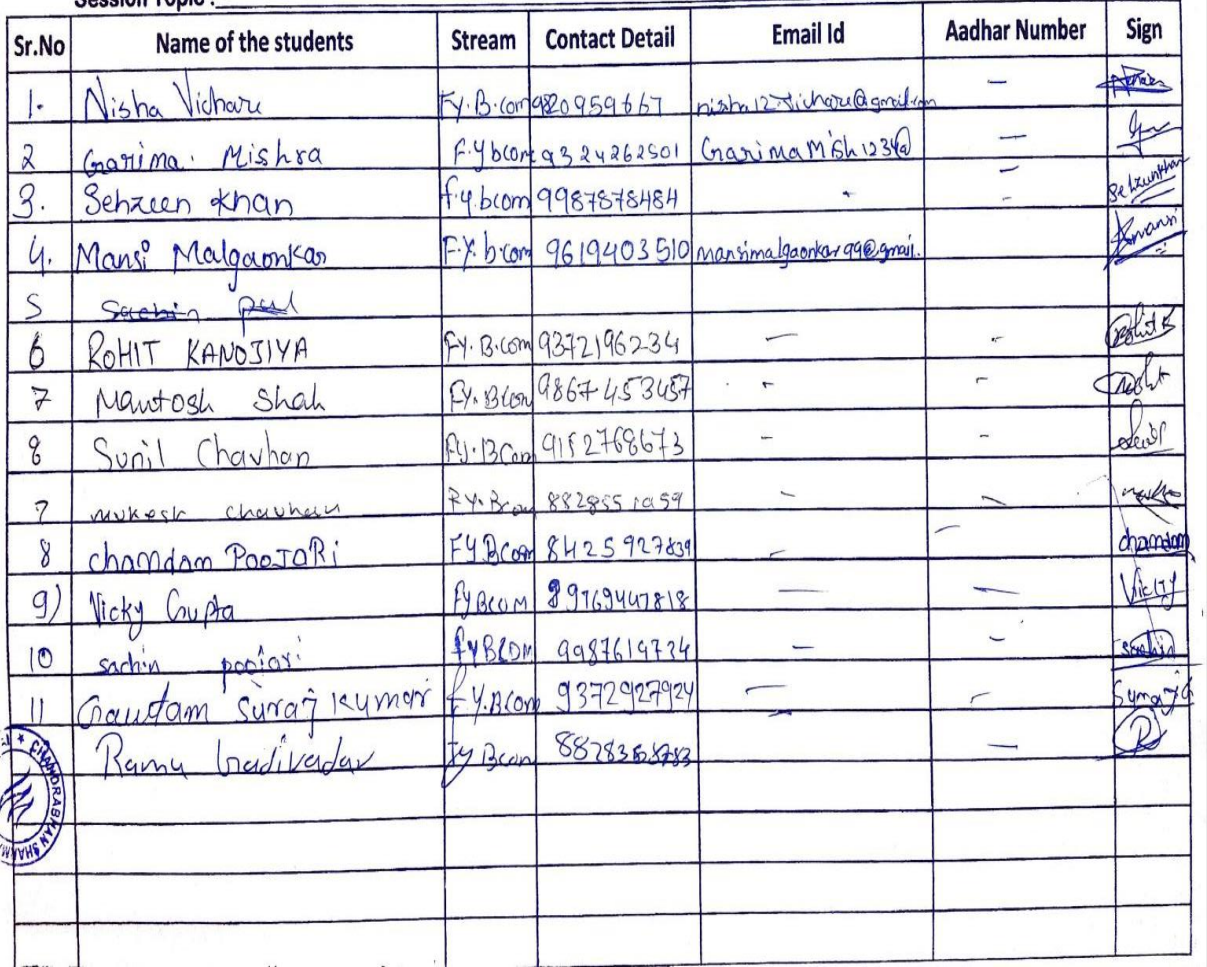 Session Topic :
Sr.No Name of the students Stream Contact Detail Email Id Aadhar Number Sign
1. Nisha Vichare F.Y.B.com 9820959667 nisha12vichare@gmail.com —
2 Garima. Mishra F.Y bcom 9324262501 GarimaMish1234@ —
3. Sehzeen Khan f.y.bcom 9987878484 - — Sehzeenkhan
4. Mansi Malgaonkar F.Y. b.com 9619403510 mansimalgaonkar99@gmail. mansi
5 Sachin
6 ROHIT KANOJIYA F.Y. B.com 9372196234 — - Rohit
7 Mantosh Shah F.Y. Bcom 9867453457 - -
8 Sunil Chavhan F.Y. B.Com 9152768673 - -
7 mukesh chauhan F.Y. Bcom 8828551959 - -
8 chandan POOJARI FY.Bcom 8425927839 - - chandan
9) Vicky Gupta FYBCOM 8976947818 — — Vicky
10 sachin poojari fyBCOM 9987619734 — - sachin
11 Gautam Suraj Kumar F.Y.BCom 9372927924 — - Suraj G
Ramu Fy Bcom — R
CHANDRABHAN SHARMA